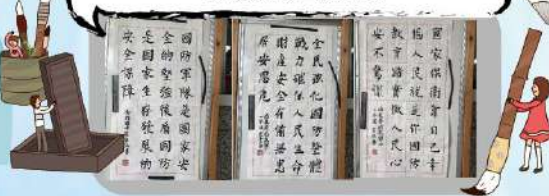 國家保衛靠自己幸
福人民就是你國防
教育踏實做人民心
安不驚慌
全民強化國防整體
戰力確保人民生命
財產安全有備無患
居安思危
國防軍隊是國家安
全的堅強後盾國防
是國家生存發展的
安全保障